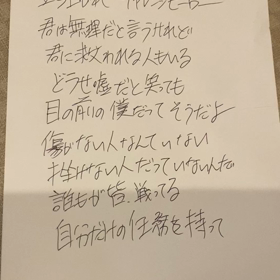 君は無理だと言うけれど
君に救われる人もいる
どうせ嘘だと笑っても
目の前の僕だってそうだよ
傷がない人なんていない
挫けない人だっていないんだ
誰もが皆、戦ってる
自分だけの任務を持って